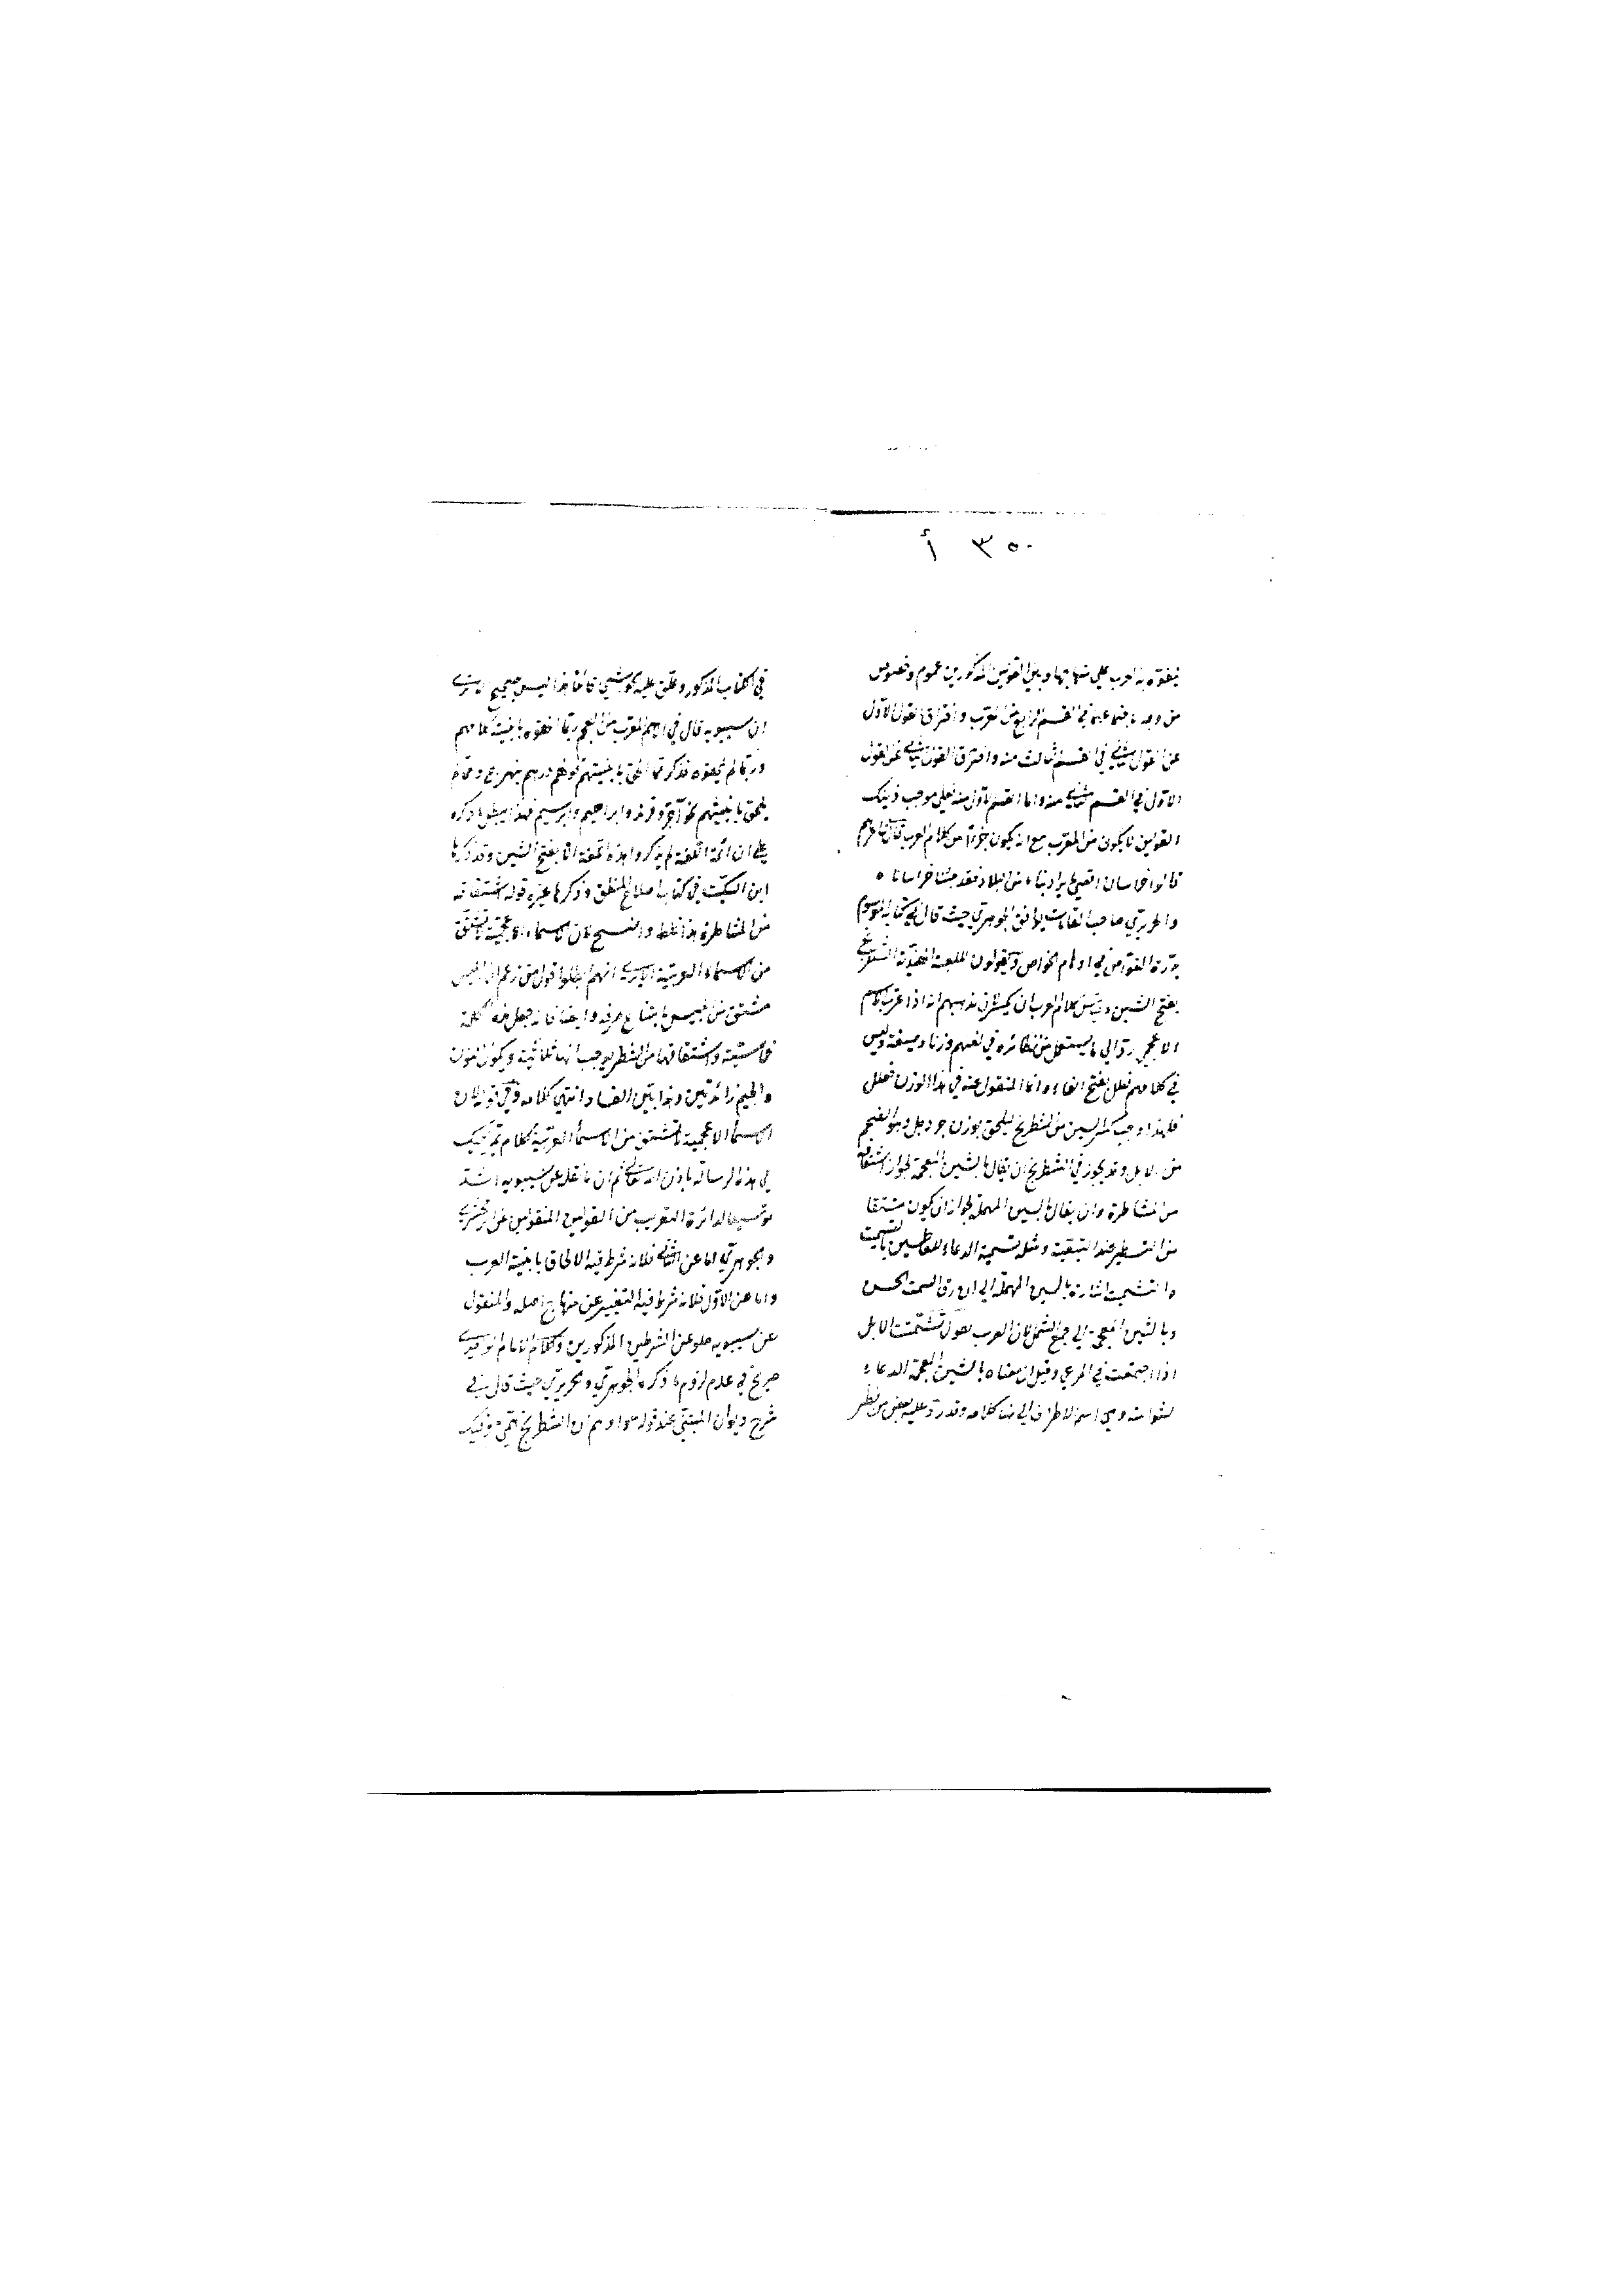 ٣٥٠ أ
يتفوه به العرب على منهاجها وبين القولين المذكورين عموم وخصوص
من وجه لاجتماعهما في القسم الرابع من المعرب وافتراق القول الأول
عن القول الثاني في القسم الثالث منه وافتراق القول الثاني عن القول
الأول في القسم الثاني منه واما القسم الأول منه فعلى موجب ذينك
القولين لا يكون من المعرب مع انه يكون جزءا من كلام العرب
قالوا خراسان اقصى ما يراد بنا من البلاد فقد جئنا خراسانا
والحريري صاحب المقامات يوافق الجوهري حيث قال في كتابه الموسوم
بدرة الغواص في اوهام الخواص ويقولون للعبة الهندية الشطرنج
بفتح الشين وقياس كلام العرب ان تكسر لان مذهبهم انه اذا عرب الاسم
الاعجمي رد الى ما يستعمل من نظائره في لغتهم وزنا وصيغة وليس
في كلامهم فعلل بفتح الفاء وانما المنقول عنه في هذا الوزن فعلل
فلهذا وجب كسر الشين من الشطرنج ليلحق بوزن جردحل وهو الضخم
من الابل وقد يجوز في الشطرنج ان يقال بالشين المعجمة لجواز اشتقاقه
من المشاطرة وان يقال بالسين المهملة لجواز ان يكون مشتقا
من التسطير عند التعبية ومثله تسمية الدعاء للعاطسين بالتسميت
والتشميت اشارة بالسين المهملة الى ان رزق السمت الحسن
وبالشين المعجمة الى جمع الشمل لان العرب تقول تشمتت الابل
اذا اجتمعت في المرعى وقيل ان معناه بالشين المعجمة الدعاء
لشوامته وهي اسم الاطراف الى هنا كلامه وقد رد عليه بعض من نظر
في الكتاب المذكور وعلق عليه الحواشي قائلا هذا ليس بصحيح الا ترى
ان سيبويه قال في الاسم المعرب من العجم ربما الحقوه بابنية كلامهم
وربما لم يلحقوه فذكر مما الحق بابنيتهم قولهم درهم بهرج ومما لم
يلحق بابنيتهم نحو آجر وفرند وابراهيم وابريسم فهذا يبطل ما ذكره
على ان ائمة اللغة لم يذكروا هذه اللعبة الا بفتح الشين وقد ذكرها
ابن السكيت في كتاب اصلاح المنطق وذكرها غيره قوله اشتقاقه
من المشاطرة هذا غلط واضح لان الاسماء الاعجمية لا تشتق
من الاسماء العربية الا ترى انهم ابطلوا قول من زعم ان ابليس
مشتق من ابليس بامتناع صرفه وايضا فانه جعل هذه الكلمة
خماسية واشتقاقها من الشطر يوجب انها ثلاثية ويكون النون
والجيم زائدتين وهذا بين الفساد انتهى كلامه وفي قوله لان
الاسماء الاعجمية لا تشتق من الاسماء العربية كلام
في هذه الرسالة باذن الله تعالى ثم ان ما نقل عن سيبويه اشد
توسيعا لدائرة التعريب من القولين المنقولين عن الزمخشري
والجوهري اما عن الثاني فلانه شرط فيه الالحاق بابنية العرب
واما عن الأول فلانه شرط فيه التغيير عن منهاج اصله والمنقول
عن سيبويه خلو عن الشرطين المذكورين وكلام الامام الواحدي
صريح في عدم لزوم ما ذكره الجوهري والحريري حيث قال في
شرح ديوان المتنبي عند قوله